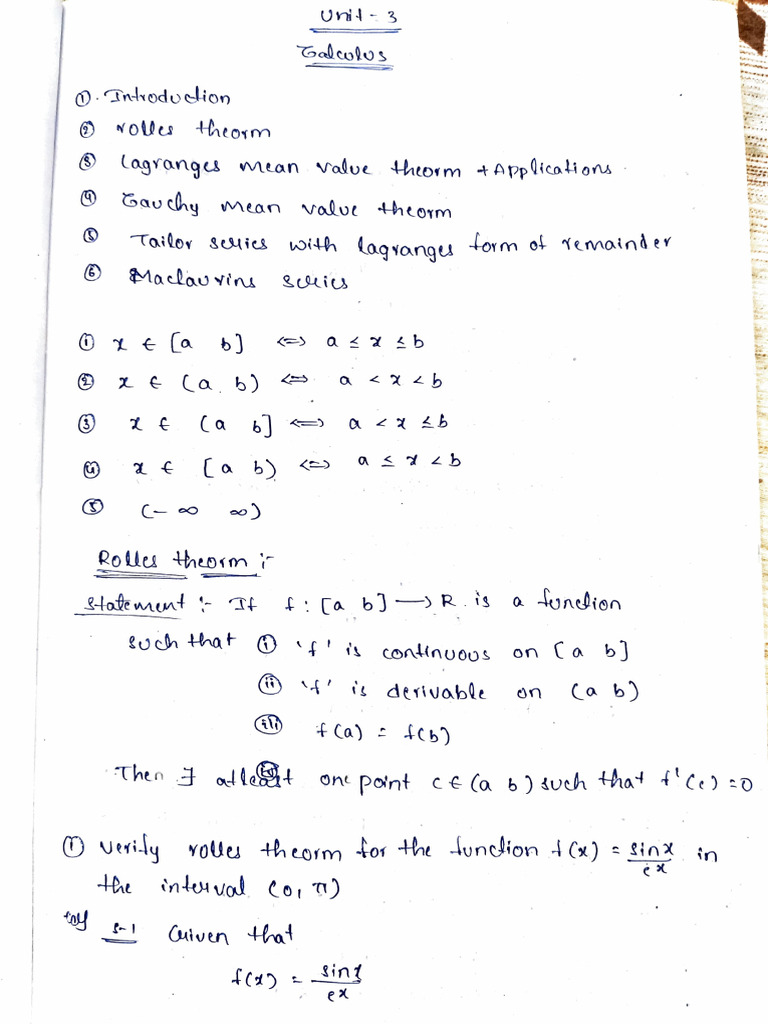 Unit - 3
Calculus
① . Introduction
② rolles theorm
③ Lagranges mean value theorm + Applications .
④ Cauchy mean value theorm
⑤ Tailor series with lagranges form of remainder
⑥ Maclaurins series
① x ∈ [a b] <=> a ≤ x ≤ b
② x ∈ (a b) <=> a < x < b
③ x ∈ (a b] <=> a < x ≤ b
④ x ∈ [a b) <=> a ≤ x < b
⑤ (-∞ ∞)
Rolles theorm :-
Statement :- If f : [a b] → R is a function
such that ⓘ 'f' is continuous on [a b]
ⓘⓘ 'f' is derivable on (a b)
ⓘⓘⓘ f(a) = f(b)
Then ∃ atleast one point c ∈ (a b) such that f'(c) = 0
① Verify rolles theorm for the function f(x) = sinx/e^x in
the interval (0, π)
s-1 Given that
f(x) = sinx/e^x